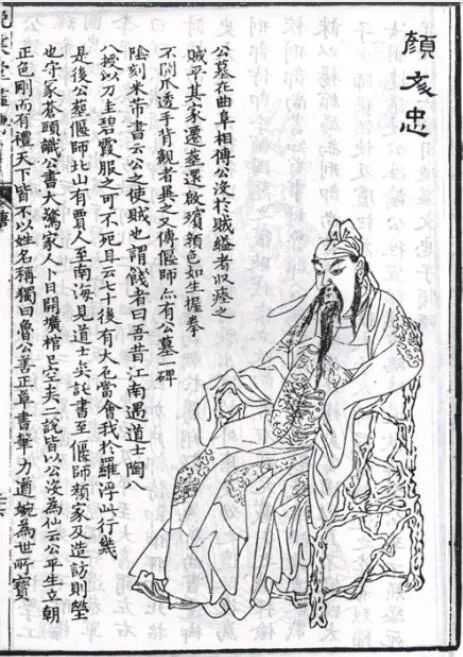 顏文忠
公墓在曲阜相傳公沒於賊縊者収瘞之
賊平其家遷葬還啟殯顏色如生握拳
不開爪透手背觀者異之又傳偃師亦有公墓一碑
陰刻米芾書云公之使賊也謂餞者曰吾昔江南遇道士陶八
八授以刀圭碧霞服之可不死耳云七十後有大厄當會我於羅浮山行幾
是後公葬偃師北山有賈人至南海見道士奕託書至偃師顏家及造訪則塋
也守冢蒼頭識公書大驚家人卜日開壙棺已空矣二說皆以公沒為仙云公平生立朝
正色剛而有禮天下皆不以姓名稱獨曰魯公善正草書筆力遒婉為世所寶